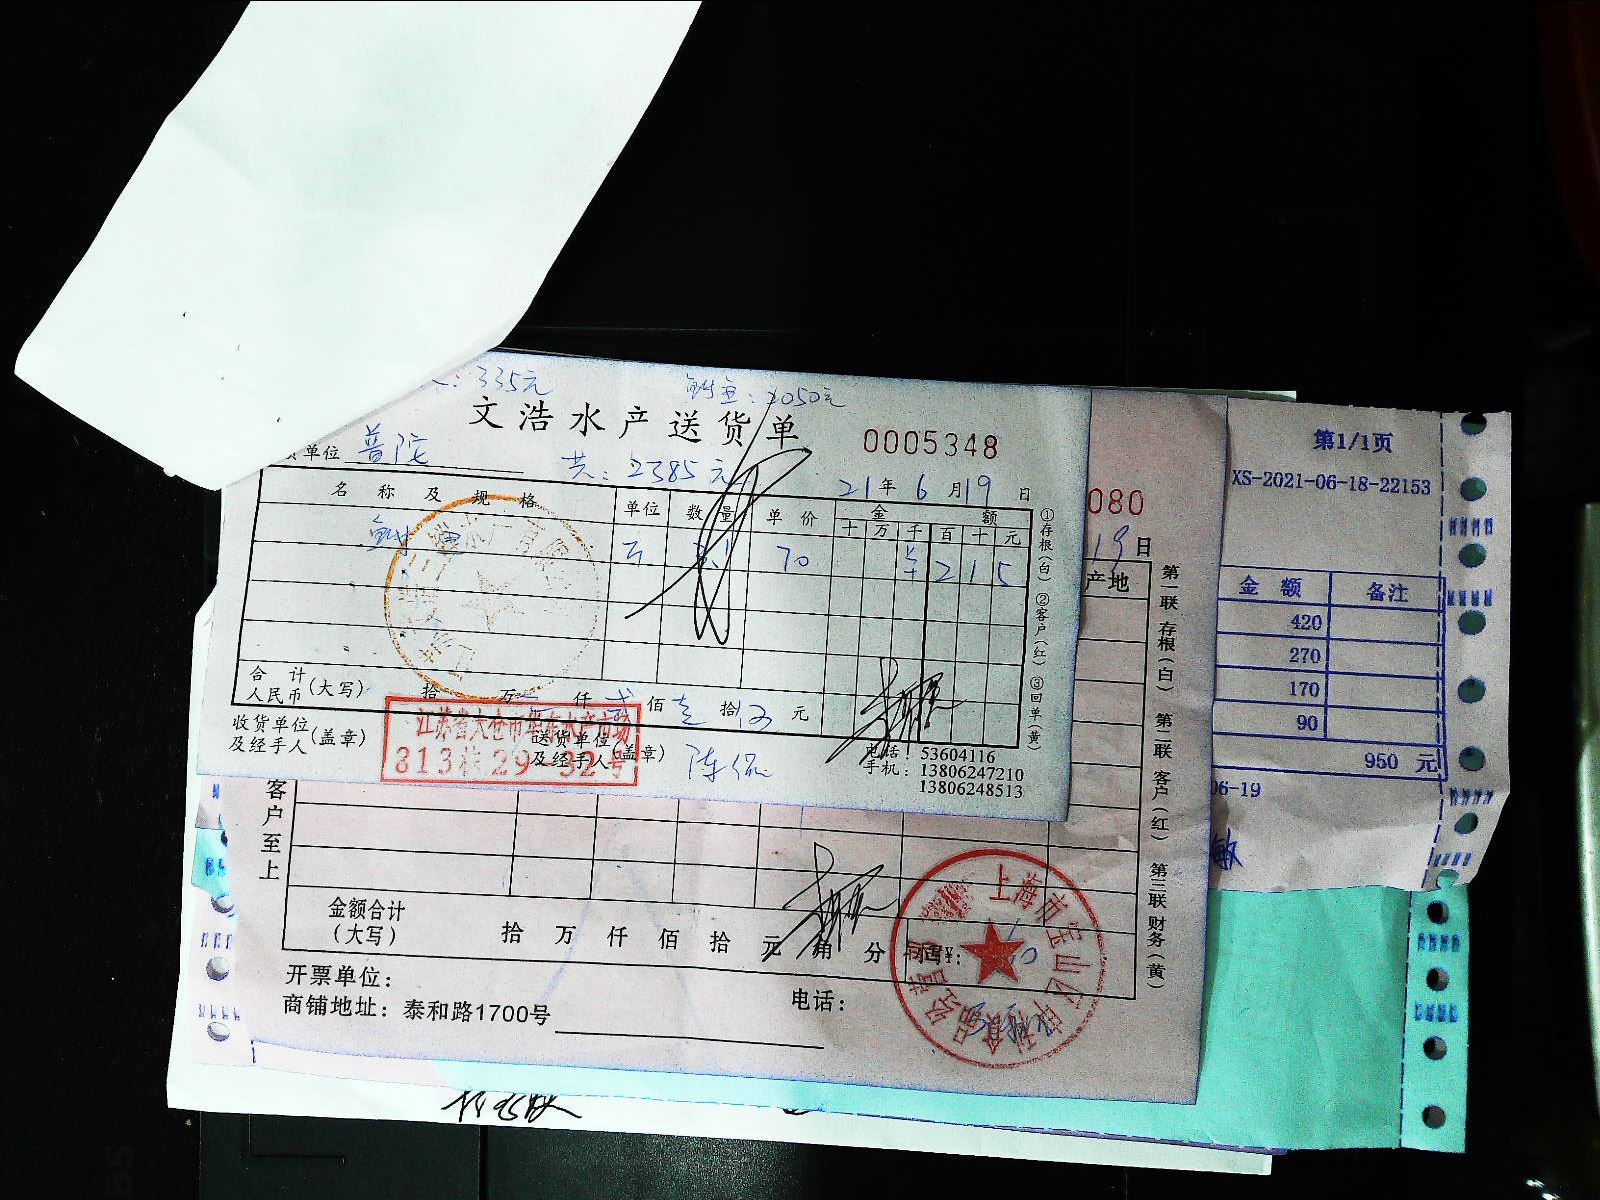 335元
鲋鱼：2050元
文浩水产送货单
0005348
单位 普陀
共：2385元
21年6月19日
名称及规格 单位 数量 单价 金额
十 万 千 百 十 元
70 ¥ 2 1 5
合计
人民币(大写) 拾 万 仟 贰佰 壹拾 伍元
收货单位
及经手人(盖章)
送货单位
及经手人(盖章)
江苏省太仓市华东水产市场
313栋29-32号
电话：53604116
手机：13806247210
13806248513
①存根(白) ②客户(红) ③回单(黄)
080
19日
产地
客户至上
金额合计
(大写) 拾 万 仟 佰 拾 元 角 分
开票单位：
商铺地址：泰和路1700号
电话：
第一联 存根(白) 第二联 客户(红) 第三联 财务(黄)
上海市宝山区
第1/1页
XS-2021-06-18-22153
金额 备注
420
270
170
90
950 元
06-19
敏